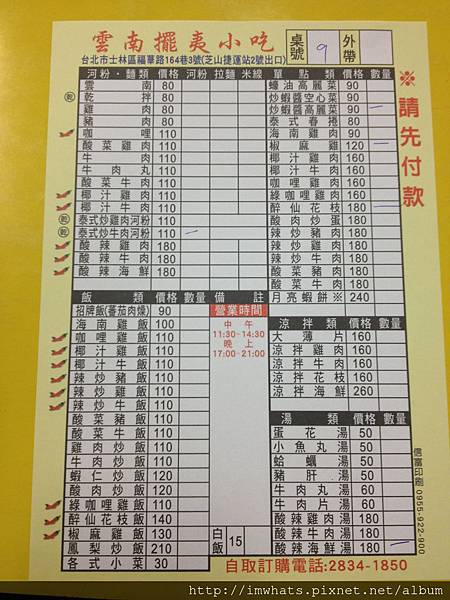 雲南擺夷小吃
桌號 9 外帶
台北市士林區福華路164巷3號(芝山捷運站2號出口)
河粉·麵類 價格 河粉 拉麵 米線
雲南 80
乾拌 80
雞肉 80
豬肉 80
咖哩 110
酸菜雞肉 110
牛肉 110
牛肉丸 110
酸菜牛肉 110
椰汁雞肉 110
椰汁牛肉 110
泰式炒雞肉河粉 110
泰式炒牛肉河粉 110
酸辣雞肉 180
酸辣牛肉 180
酸辣海鮮 180
單點類 價格 數量
蠔油高麗菜 90
炒蝦醬空心菜 90
炒蝦醬高麗菜 90
泰式春捲 80
海南雞肉 90
椒麻雞 120
椰汁雞肉 160
椰汁牛肉 160
咖哩雞肉 160
綠咖哩雞肉 160
醉仙花枝 180
酸肉炒蛋 180
辣炒豬肉 180
辣炒雞肉 180
辣炒牛肉 180
酸菜豬肉 180
酸菜牛肉 180
月亮蝦餅※ 240
※請先付款
飯類 價格 數量 備註
招牌飯(蕃茄肉燥) 90
海南雞飯 100
咖哩雞飯 110
椰汁雞飯 110
椰汁牛飯 110
辣炒豬飯 110
辣炒雞飯 110
辣炒牛飯 110
酸菜豬飯 110
酸菜牛飯 110
雞肉炒飯 110
牛肉炒飯 110
蝦仁炒飯 120
酸肉炒飯 120
綠咖哩雞飯 110
醉仙花枝飯 140
椒麻雞飯 130
鳳梨炒飯 210
各式小菜 30
營業時間
中午
11:30-14:30
晚上
17:00-21:00
白飯 15
涼拌類 價格 數量
大薄片 160
涼拌雞肉 160
涼拌牛肉 160
涼拌花枝 160
涼拌海鮮 260
湯類 價格 數量
蛋花湯 50
小魚丸湯 50
蛤蠣湯 50
豬肝湯 50
牛肉丸湯 60
牛肉片湯 60
酸辣雞肉湯 180
酸辣牛肉湯 180
酸辣海鮮湯 180
自取訂購電話:2834-1850
信富印刷 0955-922-900
http://imwhats.pixnet.net/album